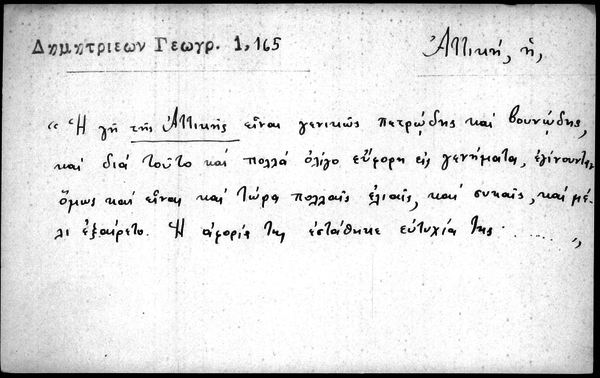 Δημητριεων Γεωγρ. 1, 165
Ἀττική, ἡ,
"Ἡ γῆ τῆς Ἀττικῆς εἶναι γενικῶς πετρῴδης καί βουνῴδης,
καί διά τοῦτο καί πολλά ὀλίγο εὔφορη εἰς γενήματα, ἐγίνουνταν
ὅμως καί εἶναι καί τώρα πολλαῖς ἐλιαῖς, καί συκαῖς, καί μέ-
λι ἐξαίρετο. Ἡ ἀφορία της ἐστάθηκε εὐτυχία της ......... "